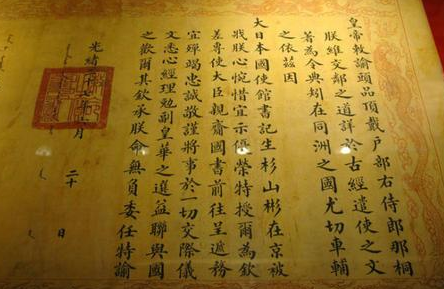 皇帝敕諭頭品頂戴戶部右侍郎那桐
朕維交鄰之道詳於古經遣使之文
著為令典矧在同洲之國尤切車輔
之依茲因
大日本國使館書記生杉山彬在京被
戕朕心惋惜宜示優榮特授爾為欽
差專使大臣親齎國書前往呈遞務
宜殫竭忠誠敬謹將事於一切交際儀
文悉心經理勉副皇華之選益聯與國
之歡爾其欽承朕命無負委任特諭
光緒 年 月 二十 日